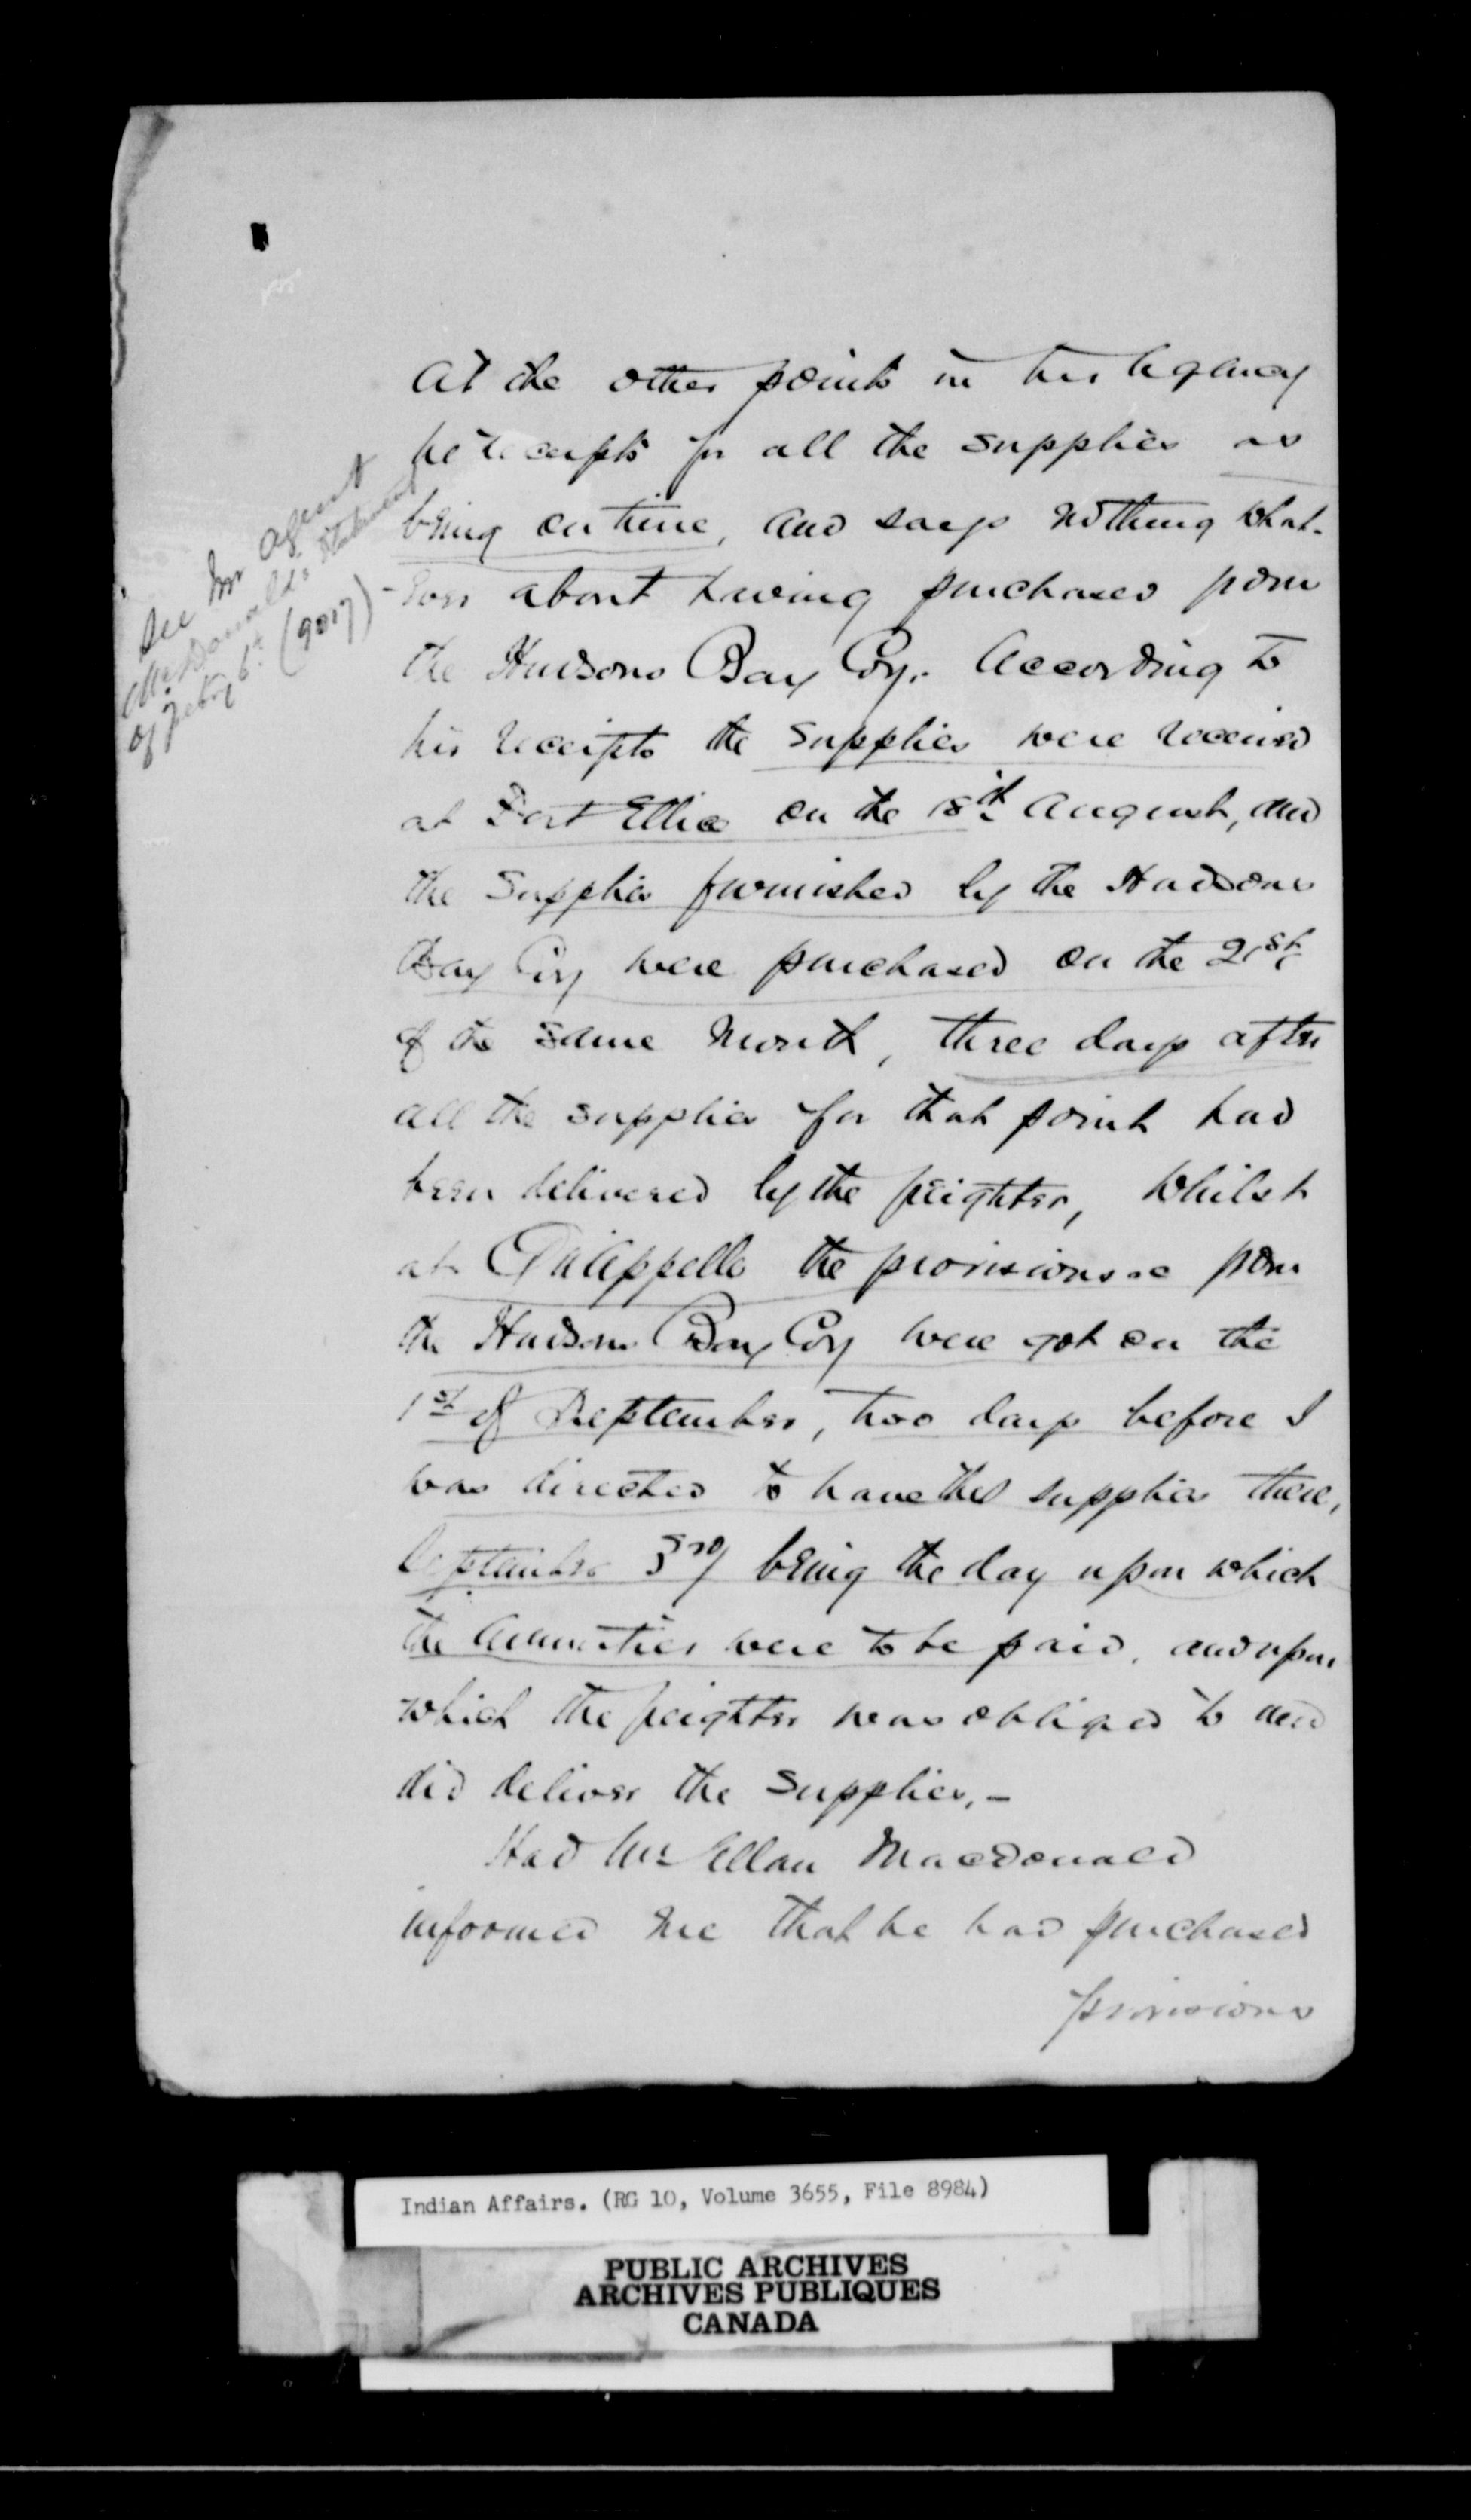 At the other points in his Agency
he receipts for all the supplies as
being on time, and says nothing what-
-ever about having purchased from
the Hudsons Bay Coy. According to
his receipts the supplies were received
at Fort Ellice on the 18th August, and
the supplies furnished by the Hudsons
Bay Coy were purchased on the 21st
of the same month, three days after
all the supplies for that point had
been delivered by the freighter, whilst
at Qu'Appelle the provisions &c from
the Hudsons Bay Coy were got on the
1st of September, two days before I
was directed to have the supplies there,
September 3rd being the day upon which
the Annuities were to be paid, and upon
which the freighter was obliged to and
did deliver the supplies.-
Had Mr Allan Macdonald
informed me that he had purchased
provisions
See Mr Agent
McDonald's statement
of Feby 6th (9017)
Indian Affairs. (RG 10, Volume 3655, File 8984)
PUBLIC ARCHIVES
ARCHIVES PUBLIQUES
CANADA